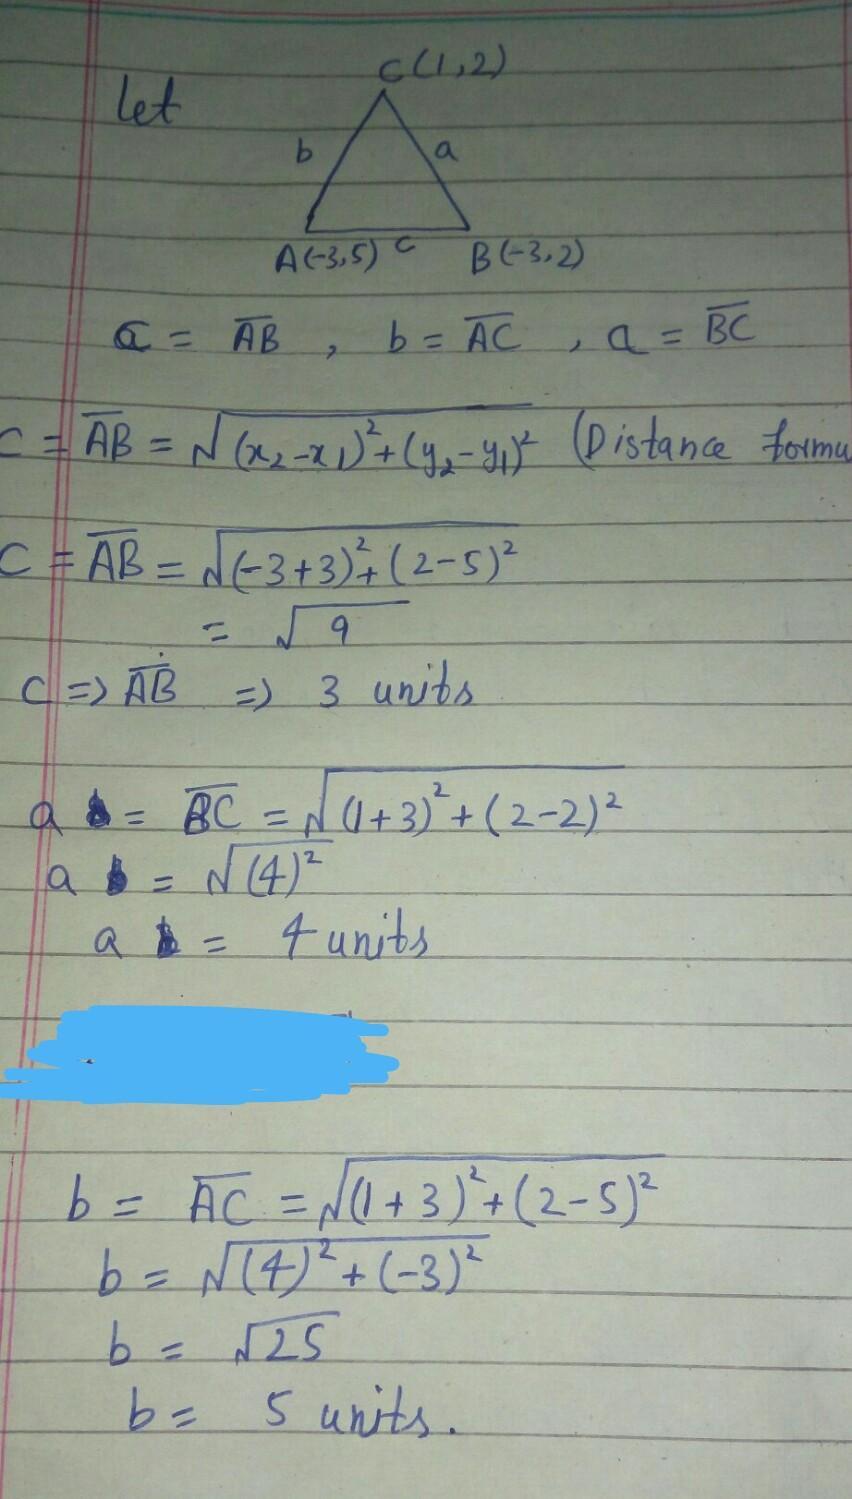 C(1,2)
Let
b a
A(-3,5) c B(-3,2)
c = A̅B̅ , b = A̅C̅ , a = B̅C̅
c = A̅B̅ = √(x₂-x₁)²+(y₂-y₁)² (Distance formu
C = A̅B̅ = √(-3+3)²+(2-5)²
= √9
C => A̅B̅ => 3 units
a = B̅C̅ = √(1+3)²+(2-2)²
a = √(4)²
a = 4 units
b = A̅C̅ = √(1+3)²+(2-5)²
b = √(4)²+(-3)²
b = √25
b = 5 units.